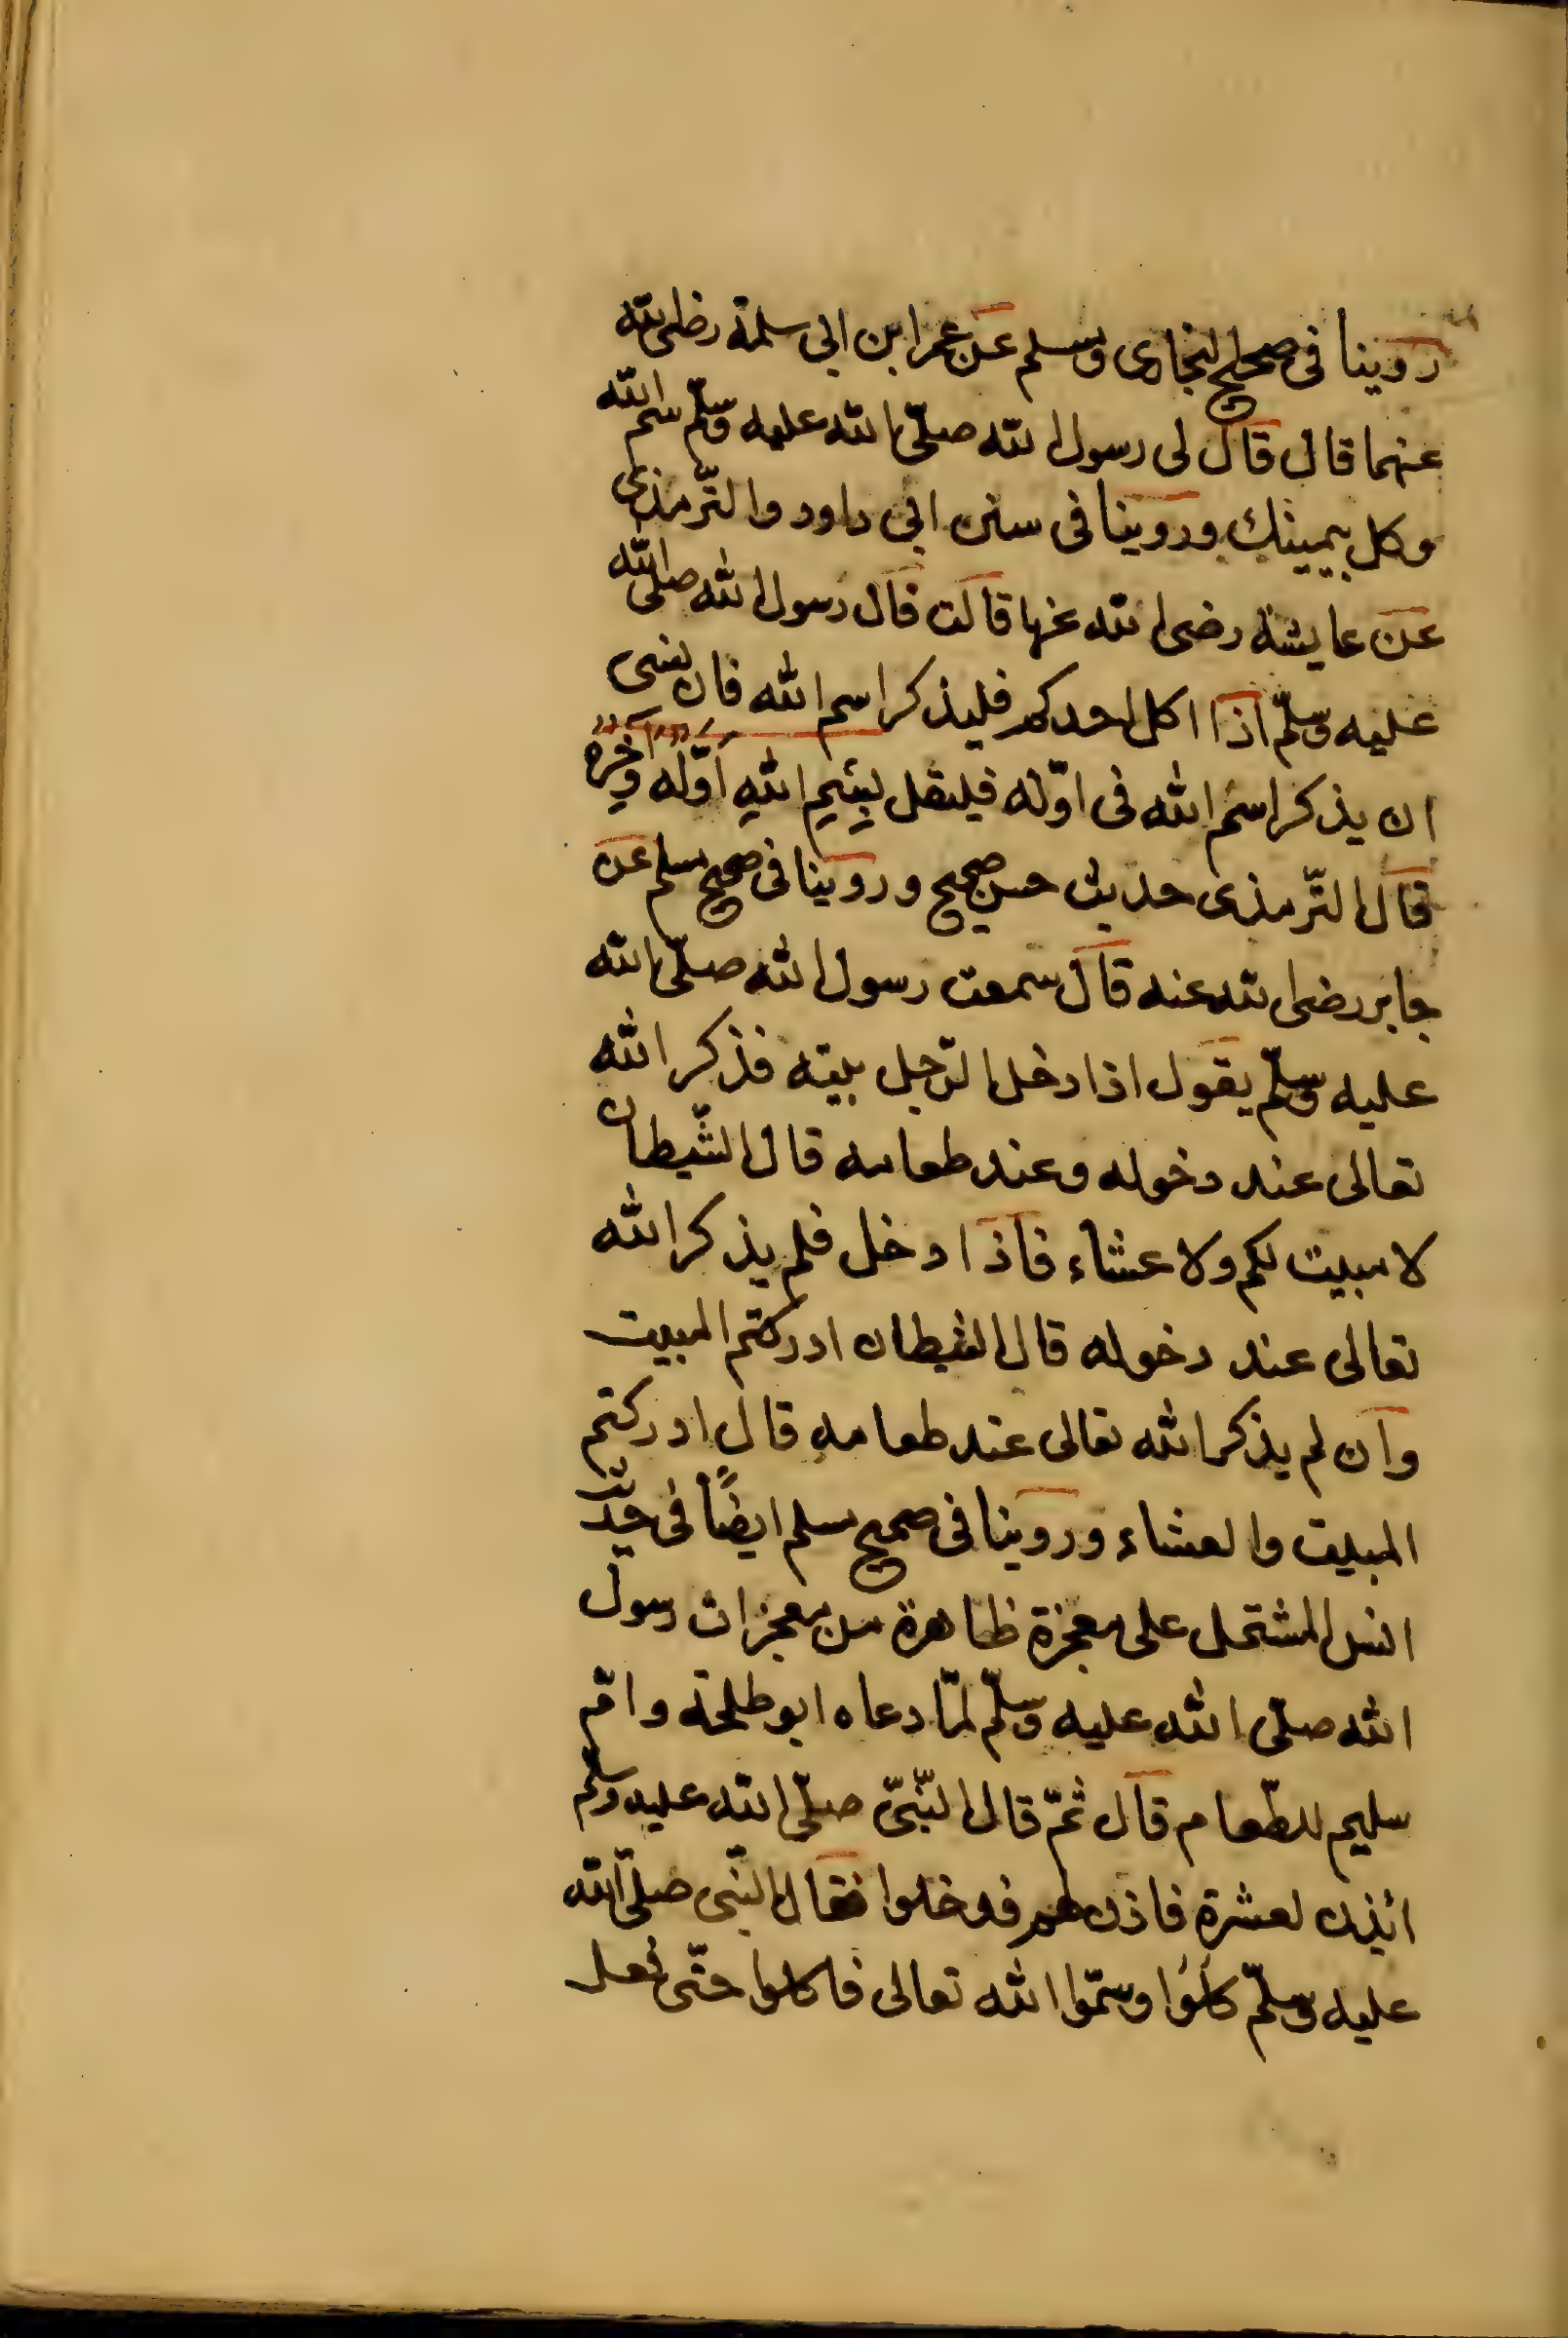 روينا فى صحيح البخارى ومسلم عن عمر ابن ابى سلمة رضى الله
عنهما قال قال لى رسول الله صلّى الله عليه وسلّم سم الله
وكل بيمينك وروينا فى سنن ابى داود والتّرمذى
عن عايشة رضى الله عنها قالت قال رسول الله صلى الله
عليه وسلّم اذا اكل احدكم فليذكر اسم الله فان نسى
ان يذكر اسم الله فى اوّله فليقل بِسْمِ اللهِ اَوَّلَهُ وَآخِرَهُ
قال التّرمذى حديث حسن صحيح وروينا فى صحيح مسلم عن
جابر رضى الله عنه قال سمعت رسول الله صلّى الله
عليه وسلّم يقول اذا دخل الرّجل بيته فذكر الله
تعالى عند دخوله وعند طعامه قال الشّيطان
لا مبيت لكم ولا عشاء فاذا دخل فلم يذكر الله
تعالى عند دخوله قال الشيطان ادركتم المبيت
وان لم يذكر الله تعالى عند طعامه قال ادركتم
المبيت والعشاء وروينا فى صحيح مسلم ايضًا فى حديث
انس المشتمل على معجزة ظاهرة من معجزات رسول
الله صلّى الله عليه وسلّم لمّا دعاه ابو طلحة وامّ
سليم للطّعام قال ثمّ قال النّبىّ صلّى الله عليه وسلّم
ائذن لعشرة فاذن لهم فدخلوا فقال النّبى صلّى الله
عليه وسلّم كلُوا وسمّوا الله تعالى فاكلوا حتّى فعل